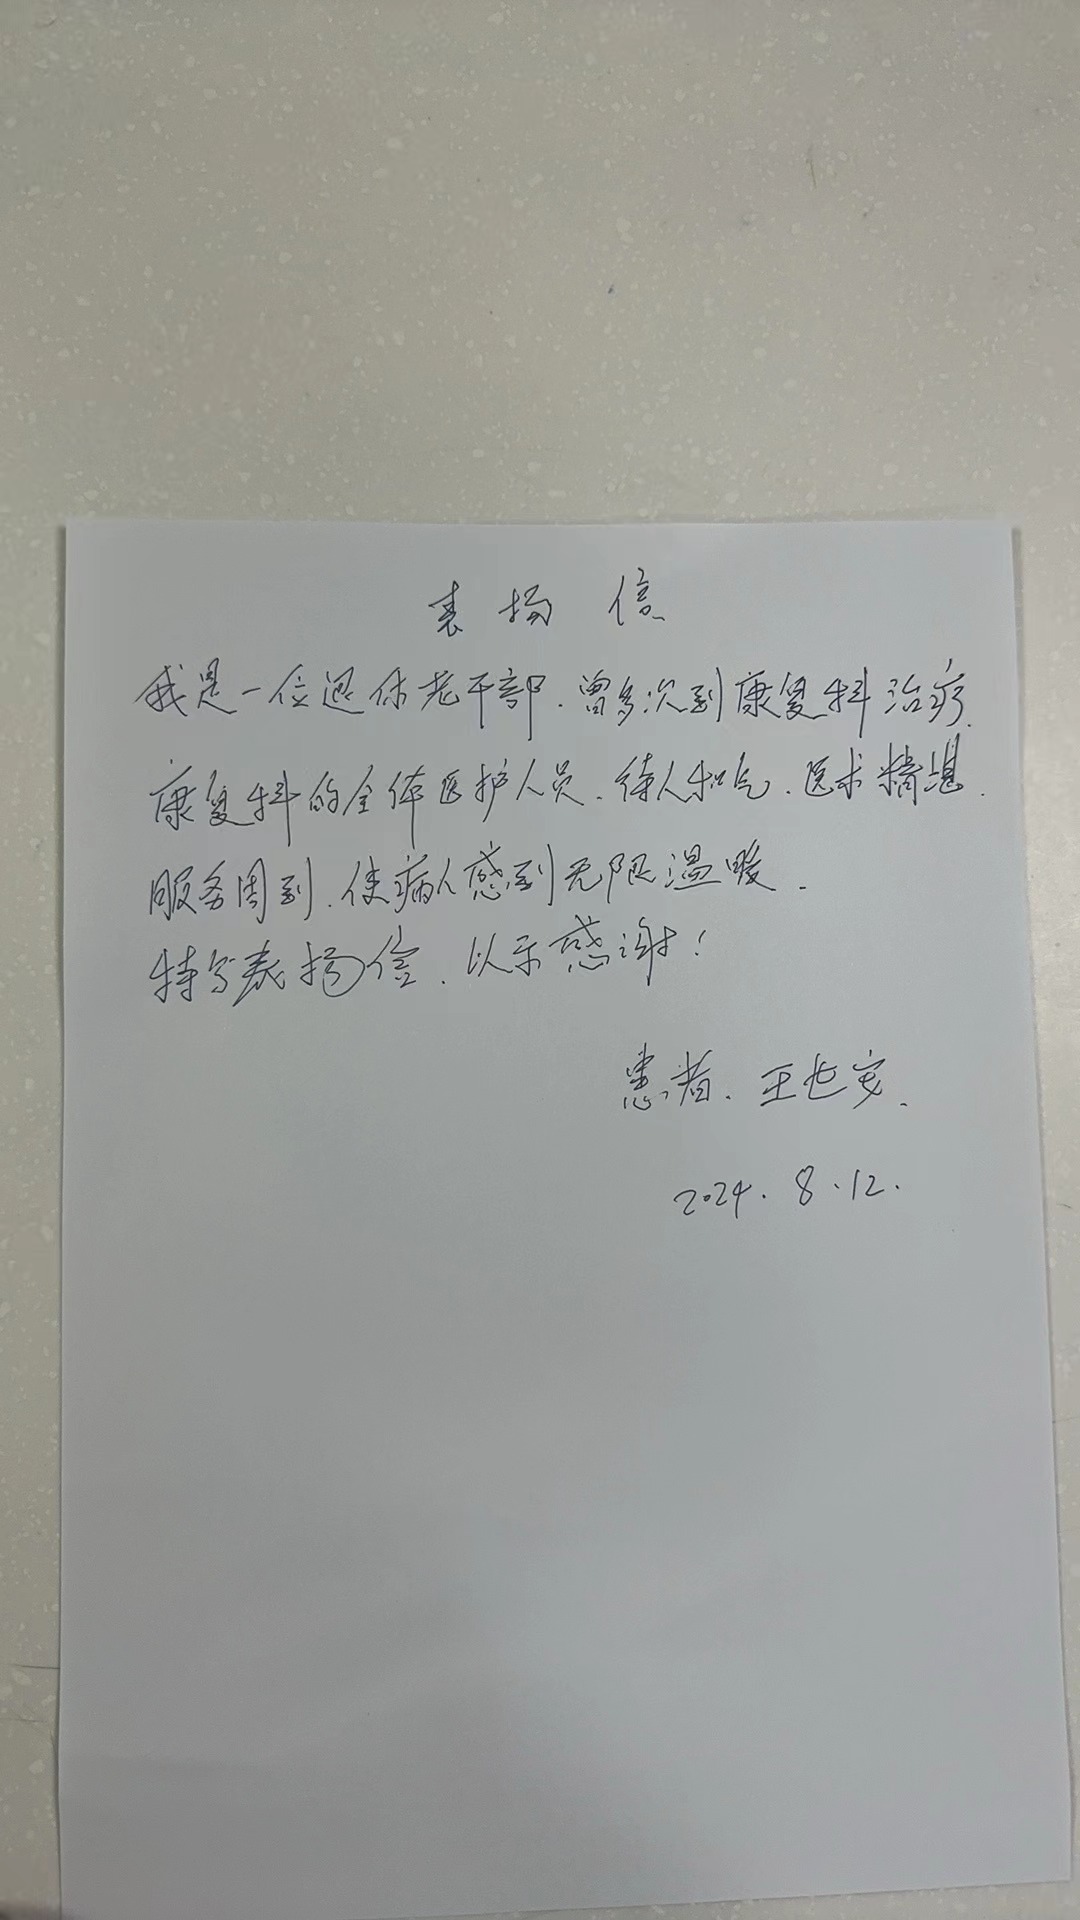 表扬信
我是一位退休老干部.曾多次到康复科治疗.
康复科的全体医护人员.待人和气.医术精湛.
服务周到.使病人感到无限温暖.
特写表扬信.以示感谢!
患者.王长安.
2024.8.12.